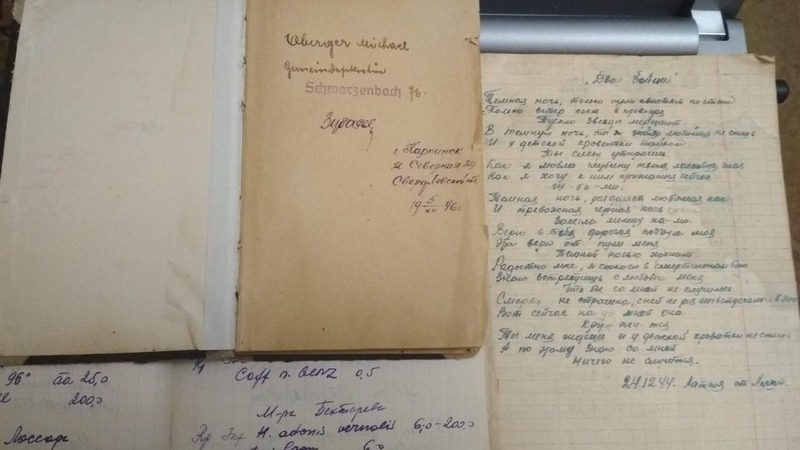 Oberger Michael
Gemeindesekretär
Schwarzenbach 76.
г. Карпинск
Северная 29
Свердловской обл
19 5/XII 46г
"Два бойца"
Темная ночь, только пули свистят по степи
Только ветер поет в проводах
Тускло звезды мерцают
В темную ночь, ты я знаю любимая не спишь
И у детской кроватки тайком
Ты слезу утираеш.
Как я люблю глубину твоих ласковых глаз
Как я хочу к ним прижатся сейчас
гу-ба-ми.
Темная ночь, разделяет любимая нас
И тревожная черная ночь
Залегла между на-ми.
Верю в тебя дорогая подругу моя
Эта вера от пули меня
Темной ночью хранит
Радостно мне, я спокоен в смертельном бою
Знаю встретишь с любовю меня
Что бы со мной не случилось
Смерть не страшна, с ней не раз мы встречались в
Вот сейчас на до мной она
Кру-жи-тся
Ты меня ждеш и у детской кроватки не спишь
И по этому знаю со мной
Ничего не случится.
24.12.44. Латвия от
96° aa 25,0
200,0
Лоссар
Coff n. benz 0,5
М-ра Бехтерева
Rp Inf. H. adonis vernalis 6,0-200,0
6,0